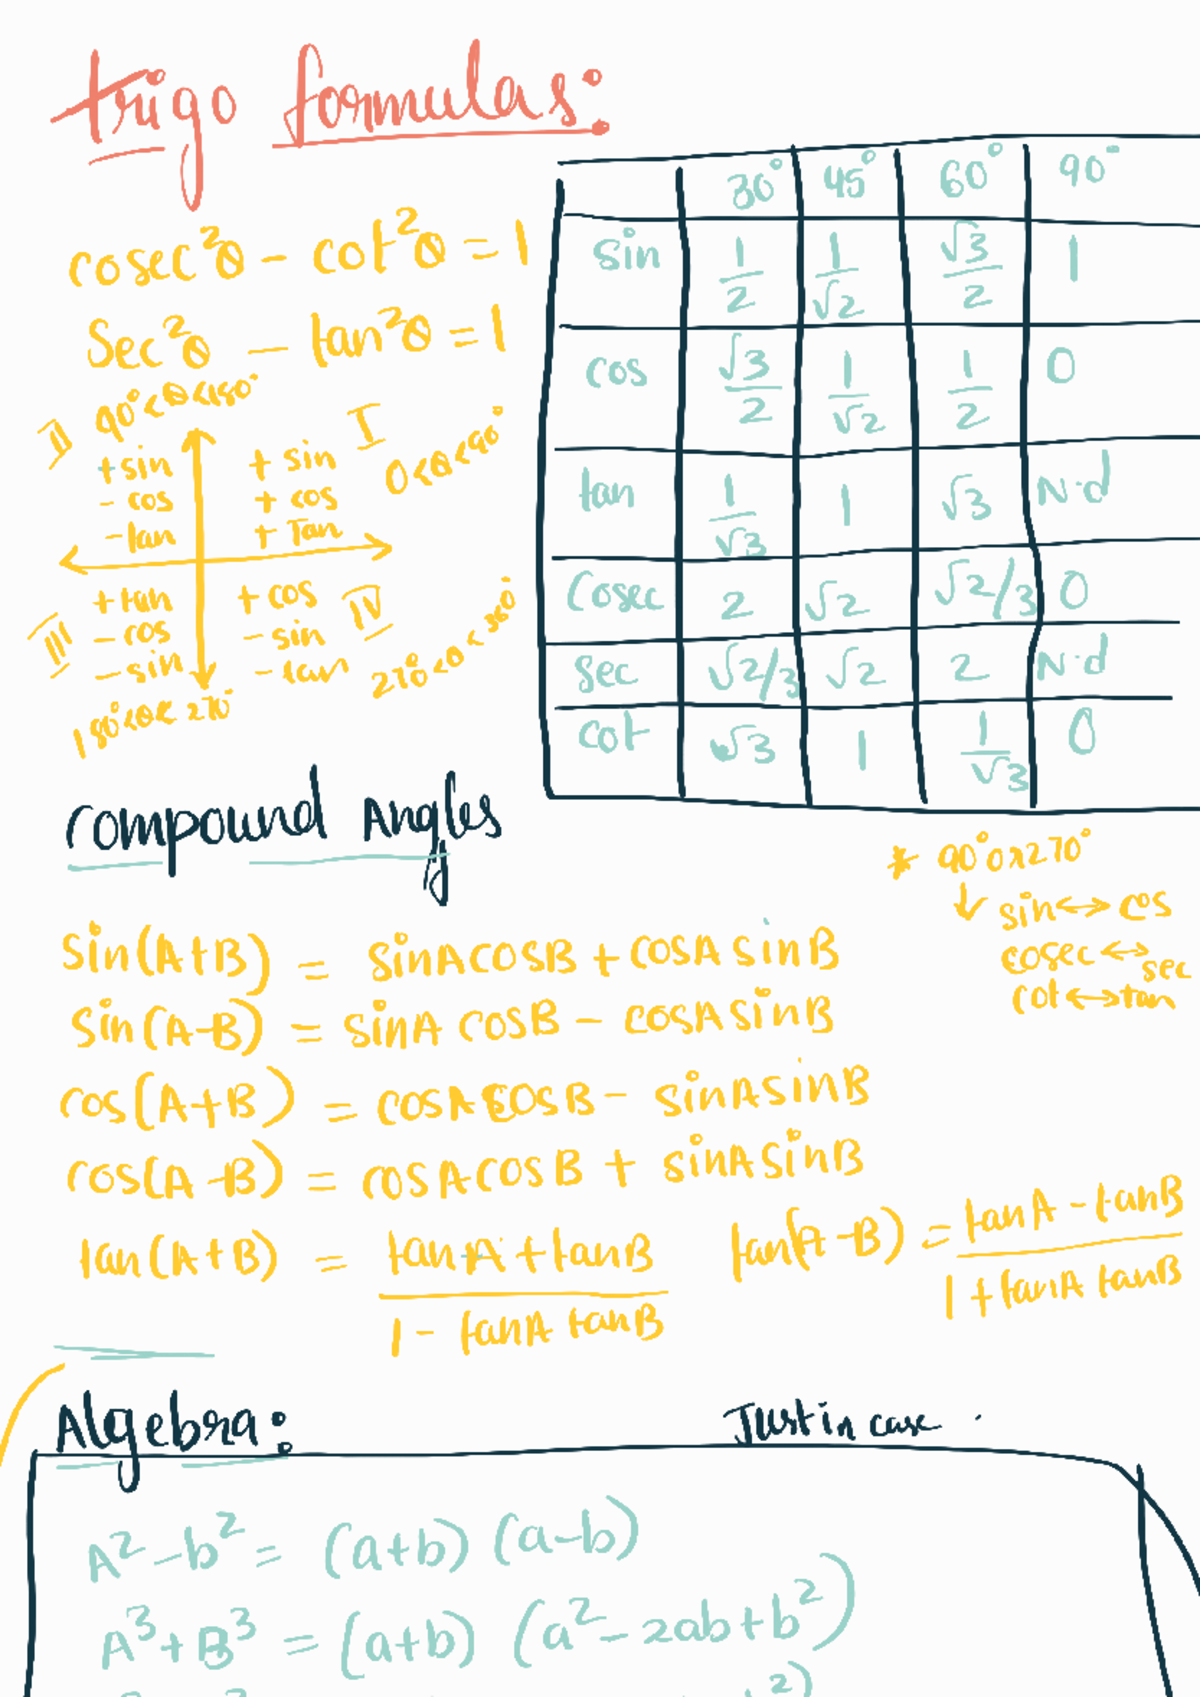 trigo formulas:
cosec²θ - cot²θ = 1
Sec²θ - tan²θ = 1
II 90°<θ<180°
+sin
- cos
-tan
I 0<θ<90°
+ sin
+ cos
+ Tan
III
+tan
- cos
- sin
180°<θ< 270°
IV
+ cos
- sin
- tan
270°<θ<360°
30° 45° 60° 90°
sin 1/2 1/√2 √3/2 1
cos √3/2 1/√2 1/2 0
tan 1/√3 1 √3 N.d
Cosec 2 √2 √2/3 0
Sec √2/3 √2 2 N.d
Cot √3 1 1/√3 0
Compound Angles
* 90° or 270°
↓ sin↔cos
cosec↔sec
cot↔tan
Sin(A+B) = sinAcosB + cosA sinB
Sin(A-B) = sinA cosB - cosAsinB
cos(A+B) = cosAcosB - sinAsinB
cos(A-B) = cosAcosB + sinAsinB
tan(A+B) = tanA + tanB / 1 - tanA tanB
tan(A-B) = tanA - tanB / 1 + tanA tanB
Algebra: Just in case .
A²-b² = (a+b) (a-b)
A³+B³ = (a+b) (a²-2ab+b²)